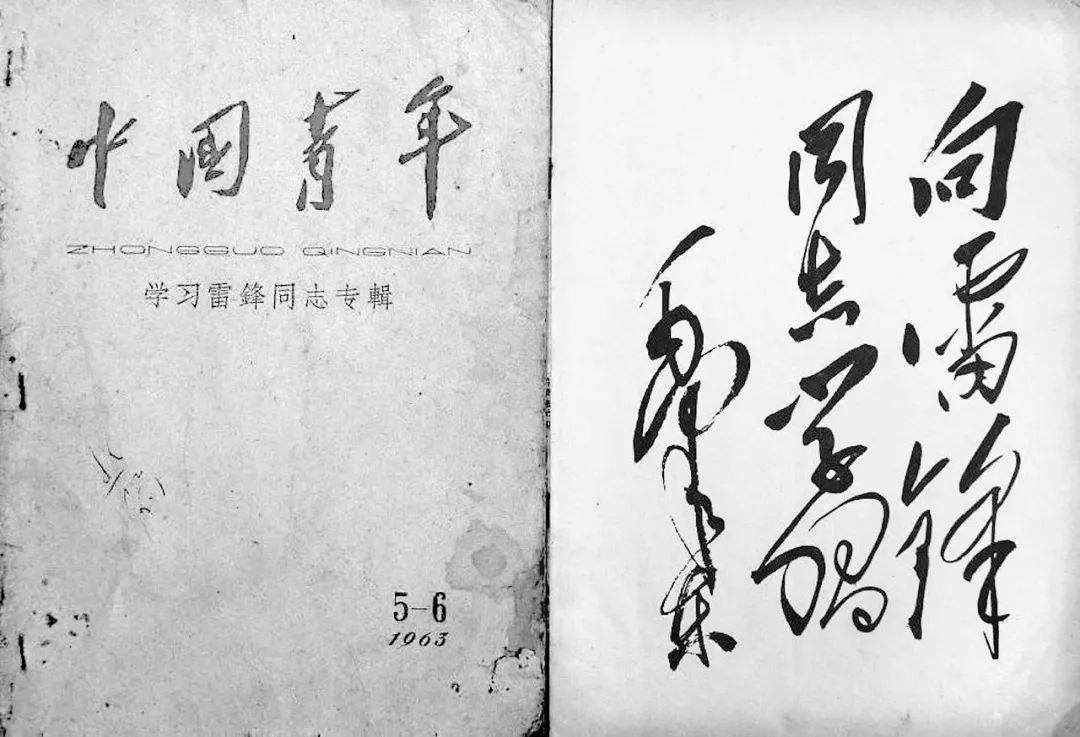 中国青年
ZHONGGUO QINGNIAN
学习雷鋒同志专輯
5-6
1963
向雷锋
同志学习
毛泽东